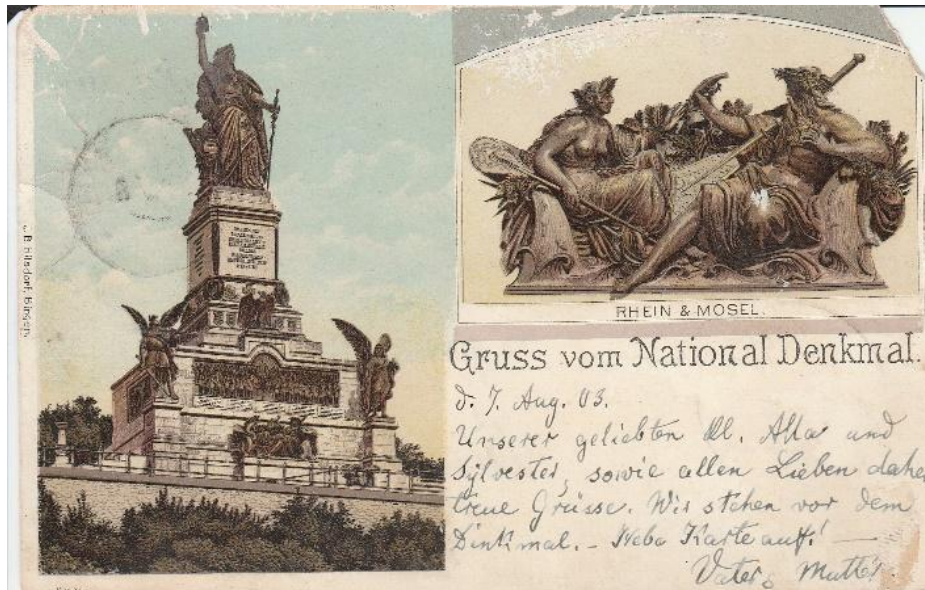 J. B. Hilsdorf, Bingen.
RHEIN & MOSEL.
Gruss vom National Denkmal.
d. 7. Aug. 03.
Unserer geliebten kl. Alla und
Sylvester, sowie allen Lieben dahe
treue Grüsse. Wir stehen vor dem
Denkmal. - Karte auff! —
Vater & Mutter